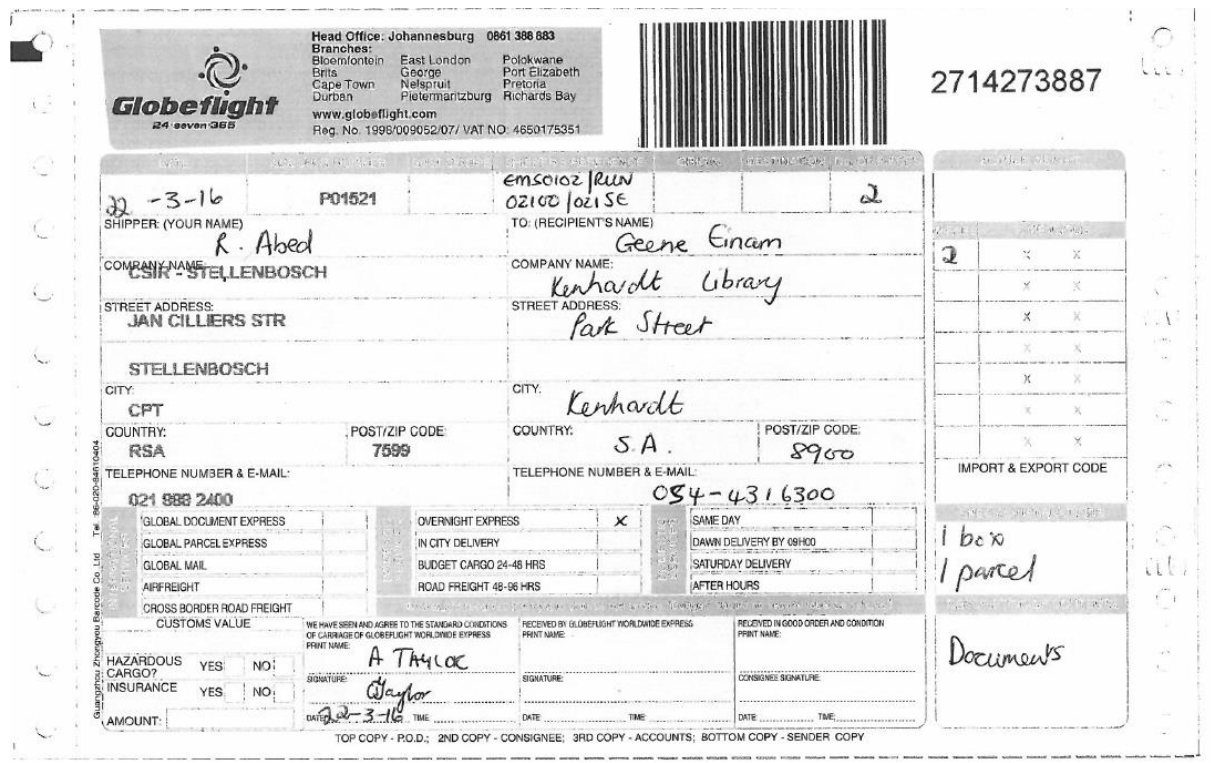 Globeflight
24·seven·365
Head Office: Johannesburg 0861 388 883
Branches:
Bloemfontein East London Polokwane
Brits George Port Elizabeth
Cape Town Nelspruit Pretoria
Durban Pietermaritzburg Richards Bay
www.globeflight.com
Reg. No. 1998/009052/07/ VAT NO: 4650175351
2714273887
22 -3-16
P01521
EMS0102 /RUN
02100 /021SE
2
SHIPPER: (YOUR NAME)
R. Abed
TO: (RECIPIENT'S NAME)
Geene Einam
COMPANY NAME:
CSIR - STELLENBOSCH
COMPANY NAME:
Kenhardt Library
STREET ADDRESS:
JAN CILLIERS STR
STELLENBOSCH
STREET ADDRESS:
Park Street
CITY:
CPT
CITY.
Kenhardt
COUNTRY:
RSA
POST/ZIP CODE:
7599
COUNTRY:
S.A.
POST/ZIP CODE:
8900
TELEPHONE NUMBER & E-MAIL:
021 888 2400
TELEPHONE NUMBER & E-MAIL:
054-4316300
2 X X
X X
X X
X X
X X
X X
X X
IMPORT & EXPORT CODE
1 box
1 parcel
Documents
GLOBAL DOCUMENT EXPRESS
GLOBAL PARCEL EXPRESS
GLOBAL MAIL
AIRFREIGHT
CROSS BORDER ROAD FREIGHT
OVERNIGHT EXPRESS X
IN CITY DELIVERY
BUDGET CARGO 24-48 HRS
ROAD FREIGHT 48-96 HRS
SAME DAY
DAWN DELIVERY BY 09H00
SATURDAY DELIVERY
AFTER HOURS
CUSTOMS VALUE
HAZARDOUS CARGO? YES NO
INSURANCE YES NO
AMOUNT:
WE HAVE SEEN AND AGREE TO THE STANDARD CONDITIONS
OF CARRIAGE OF GLOBEFLIGHT WORLDWIDE EXPRESS
PRINT NAME:
A TAYLOR
SIGNATURE:
Taylor
DATE: 22-3-16 TIME
RECEIVED BY GLOBEFLIGHT WORLDWIDE EXPRESS
PRINT NAME:
SIGNATURE:
DATE: TIME:
RECEIVED IN GOOD ORDER AND CONDITION
PRINT NAME:
CONSIGNEE SIGNATURE:
DATE: TIME:
TOP COPY - P.O.D.; 2ND COPY - CONSIGNEE; 3RD COPY - ACCOUNTS; BOTTOM COPY - SENDER COPY
Guangzhou Zhongyou Barcode Co., Ltd Tel: 86-020-84610404